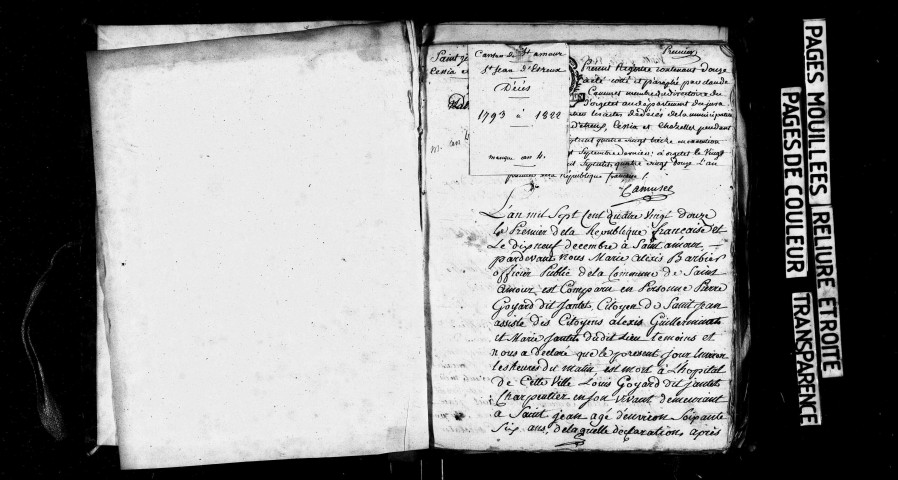 Premier
Saint
Canton de St amour
St Jean d'Etreux
Décès
1793 à 1822
manque an 4.
Présent Registre contenant douze
coté et paraphé par claude
Camuset membre du directoire du
d'orgelet au département du jura
actes de décès de la municipalité
d'etreux, Cesia et
quatre vingt treize
Septembre dernier; à orgelet le vingt
quatre vingt douze L'an
premier de la République française /.
Camuset
L'an mil Sept Cent Quatre Vingt douze
Le Premier de la République française et
Le dix neuf decembre à Saint amour
pardevant nous Marie alexis Barbier
officier Public de la Commune de Saint
amour est Comparu en Personne Pierre
Goyard dit Jantet, Citoyen de Saint jean
assisté des Citoyens alexis Guillerminet
et Marie Jantet dudit Lieu temoins et
nous a declaré que le present jour Environ
les heures du matin est mort à L'hopital
de Cette Ville Louis Goyard dit jantet
Charpentier en son Vivant demeurant
a Saint jean agé d'environ Soixante
Six ans, de laquelle declaration, après
PAGES MOUILLEES
RELIURE ETROITE
PAGES DE COULEUR
TRANSPARENCE